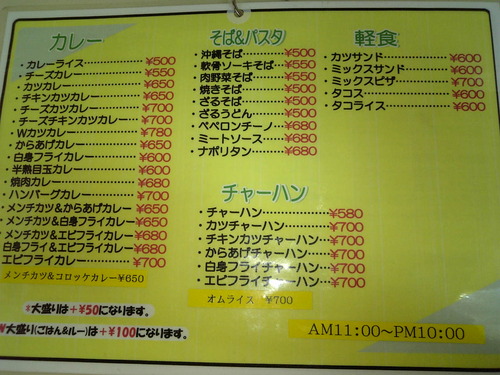 カレー
・カレーライス…………¥500
・チーズカレー…………¥550
・カツカレー……………¥650
・チキンカツカレー……¥650
・チーズカツカレー……¥700
・チーズチキンカツカレー…¥700
・Wカツカレー…………¥780
・からあげカレー………¥650
・白身フライカレー……¥600
・半熟目玉カレー………¥600
・焼肉カレー……………¥680
・ハンバーグカレー……¥700
・メンチカツ&からあげカレー¥650
・メンチカツ&白身フライカレー¥650
・メンチカツ&エビフライカレー¥680
白身フライ&エビフライカレー¥680
エビフライカレー………¥700
メンチカツ&コロッケカレー¥650
*大盛りは+¥50になります。
W大盛り(ごはん&ルー)は+¥100になります。
そば&パスタ
・沖縄そば………………¥500
・軟骨ソーキそば………¥550
・肉野菜そば……………¥550
・焼きそば………………¥500
・ざるそば………………¥500
・ざるうどん……………¥500
・ペペロンチーノ………¥680
・ミートソース…………¥680
・ナポリタン……………¥680
チャーハン
・チャーハン……………¥580
・カツチャーハン………¥700
・チキンカツチャーハン…¥700
・からあげチャーハン…¥700
・白身フライチャーハン…¥700
・エビフライチャーハン…¥700
オムライス ¥700
軽食
・カツサンド……………¥600
・ミックスサンド………¥600
・ミックスピザ…………¥700
・タコス…………………¥600
・タコライス……………¥600
AM11:00~PM10:00